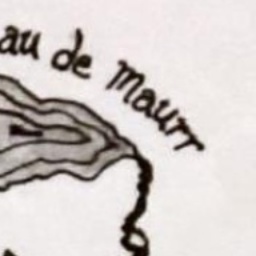 au de Maurr